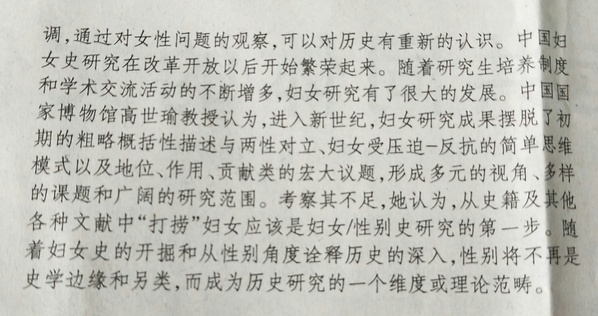 调,通过对女性问题的观察,可以对历史有重新的认识。中国妇
女史研究在改革开放以后开始繁荣起来。随着研究生培养制度
和学术交流活动的不断增多,妇女研究有了很大的发展。中国国
家博物馆高世瑜教授认为,进入新世纪,妇女研究成果摆脱了初
期的粗略概括性描述与两性对立、妇女受压迫-反抗的简单思维
模式以及地位、作用、贡献类的宏大议题,形成多元的视角、多样
的课题和广阔的研究范围。考察其不足,她认为,从史籍及其他
各种文献中“打捞”妇女应该是妇女/性别史研究的第一步。随
着妇女史的开掘和从性别角度诠释历史的深入,性别将不再是
史学边缘和另类,而成为历史研究的一个维度或理论范畴。